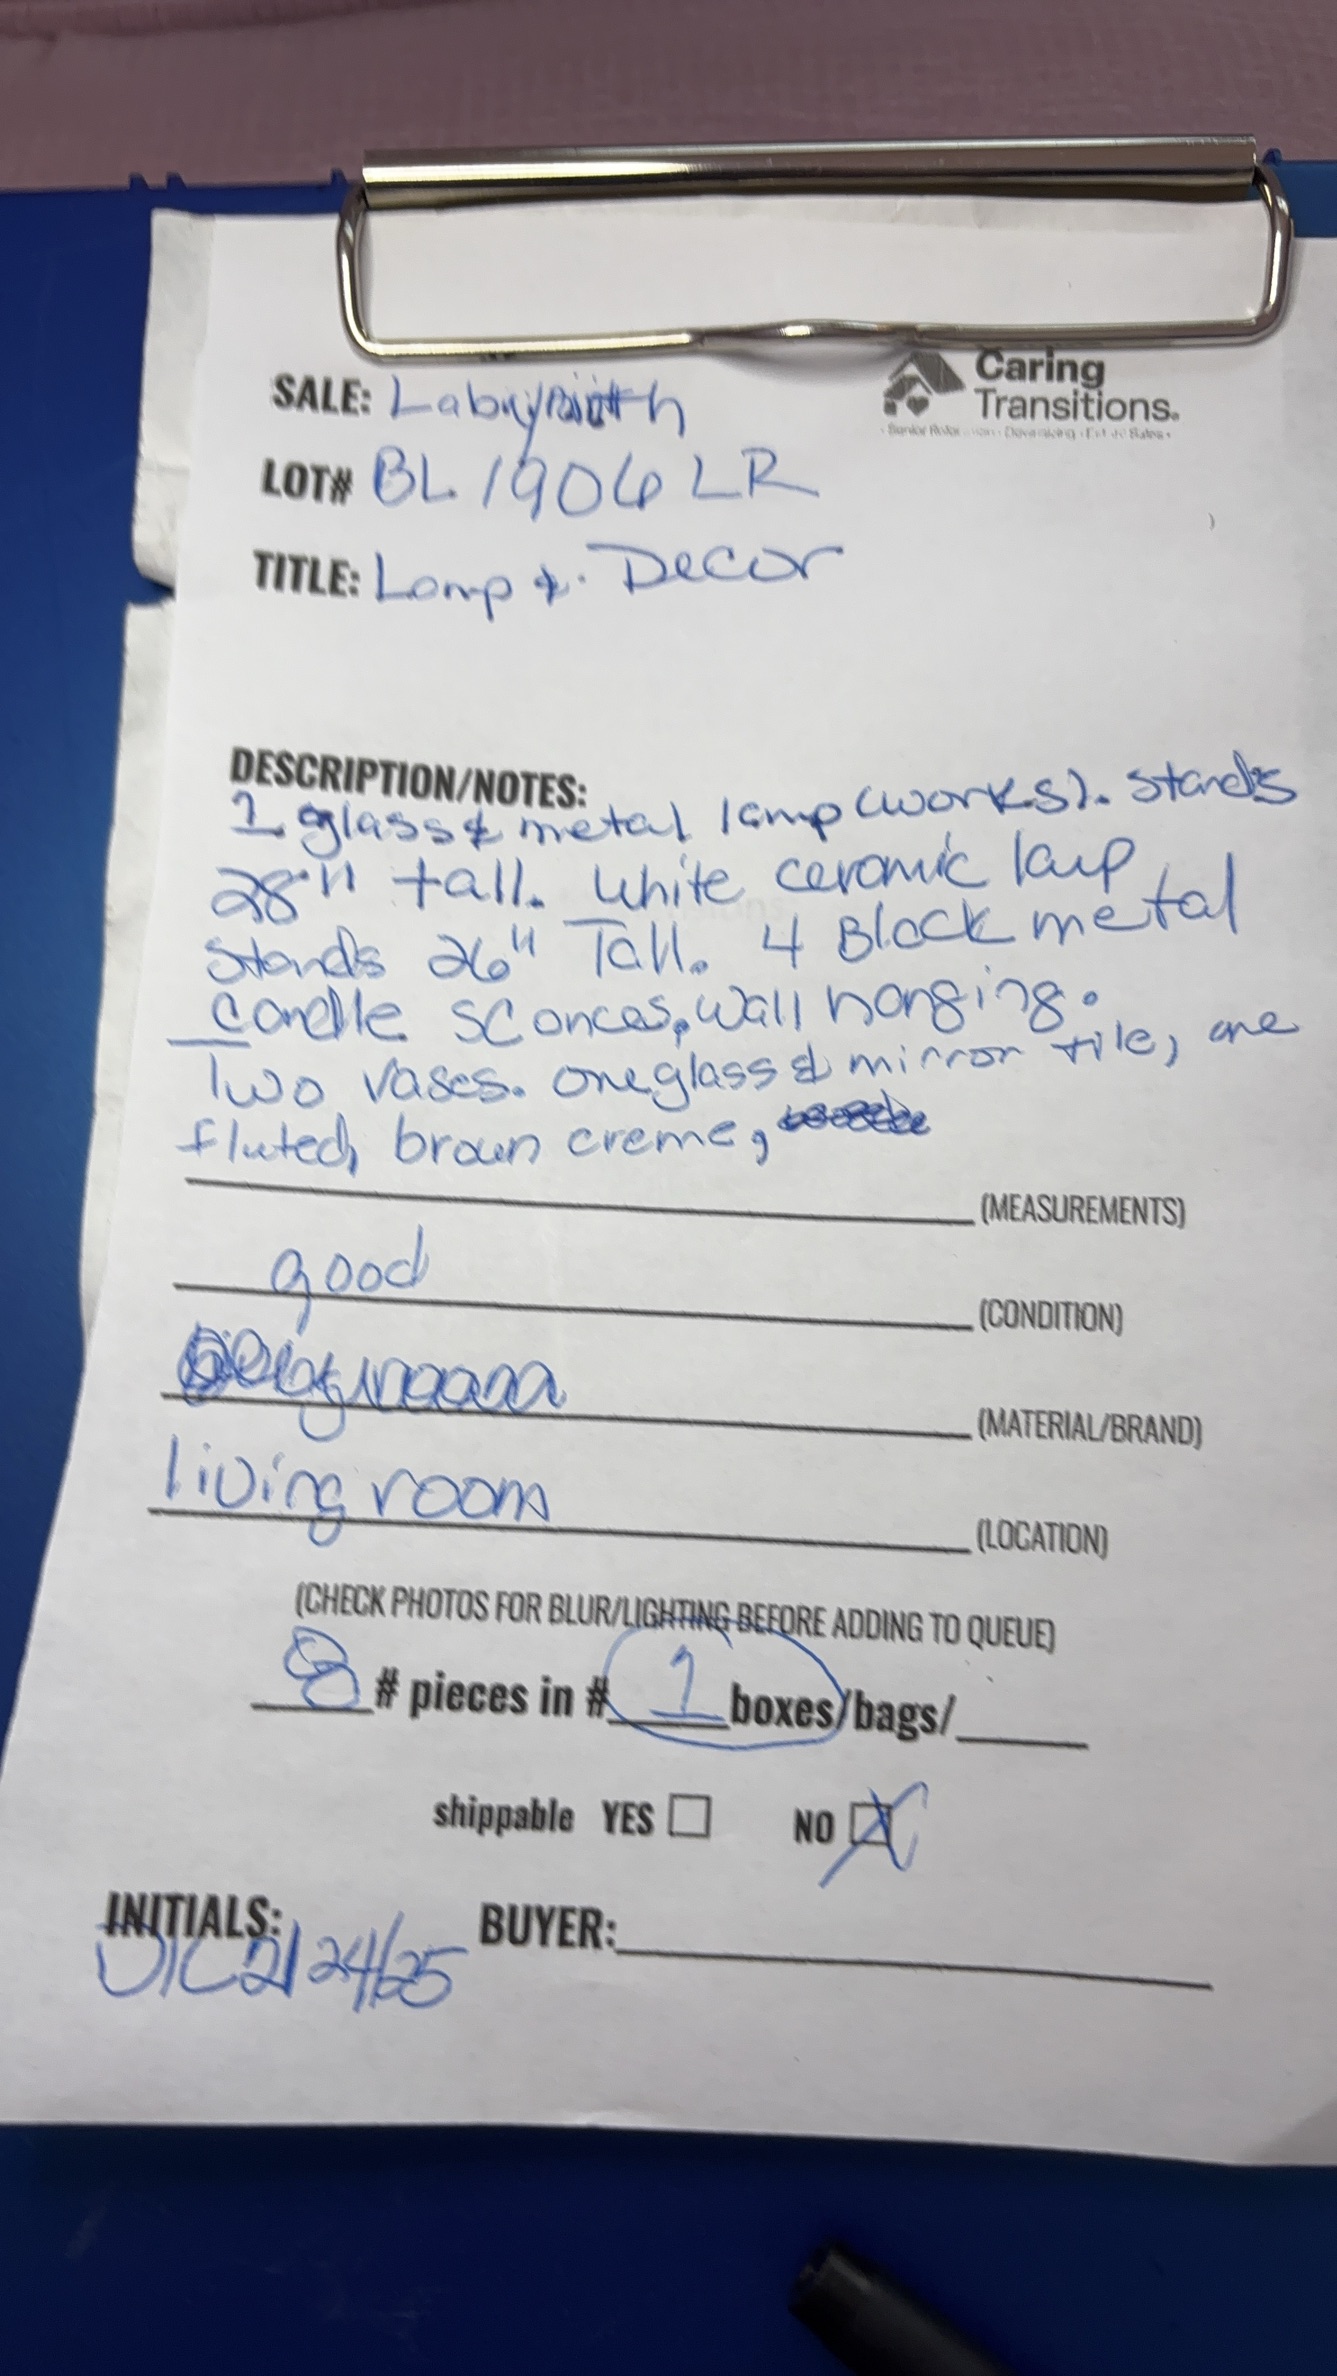 Caring
Transitions.
SALE: Labyrinth
LOT# BL 1906 LR
TITLE: Lamp & Decor
DESCRIPTION/NOTES:
1 glass & metal lamp (works). Stands
28" tall. White ceramic lamp
stands 26" Tall. 4 Black metal
Candle sconces, wall hanging.
Two vases. one glass & mirror tile, one
fluted, brown creme,
(MEASUREMENTS)
good (CONDITION)
(MATERIAL/BRAND)
living room (LOCATION)
(CHECK PHOTOS FOR BLUR/LIGHTING BEFORE ADDING TO QUEUE)
8 # pieces in # 1 boxes/bags/
shippable YES NO X
INITIALS: BUYER:
2/24/25